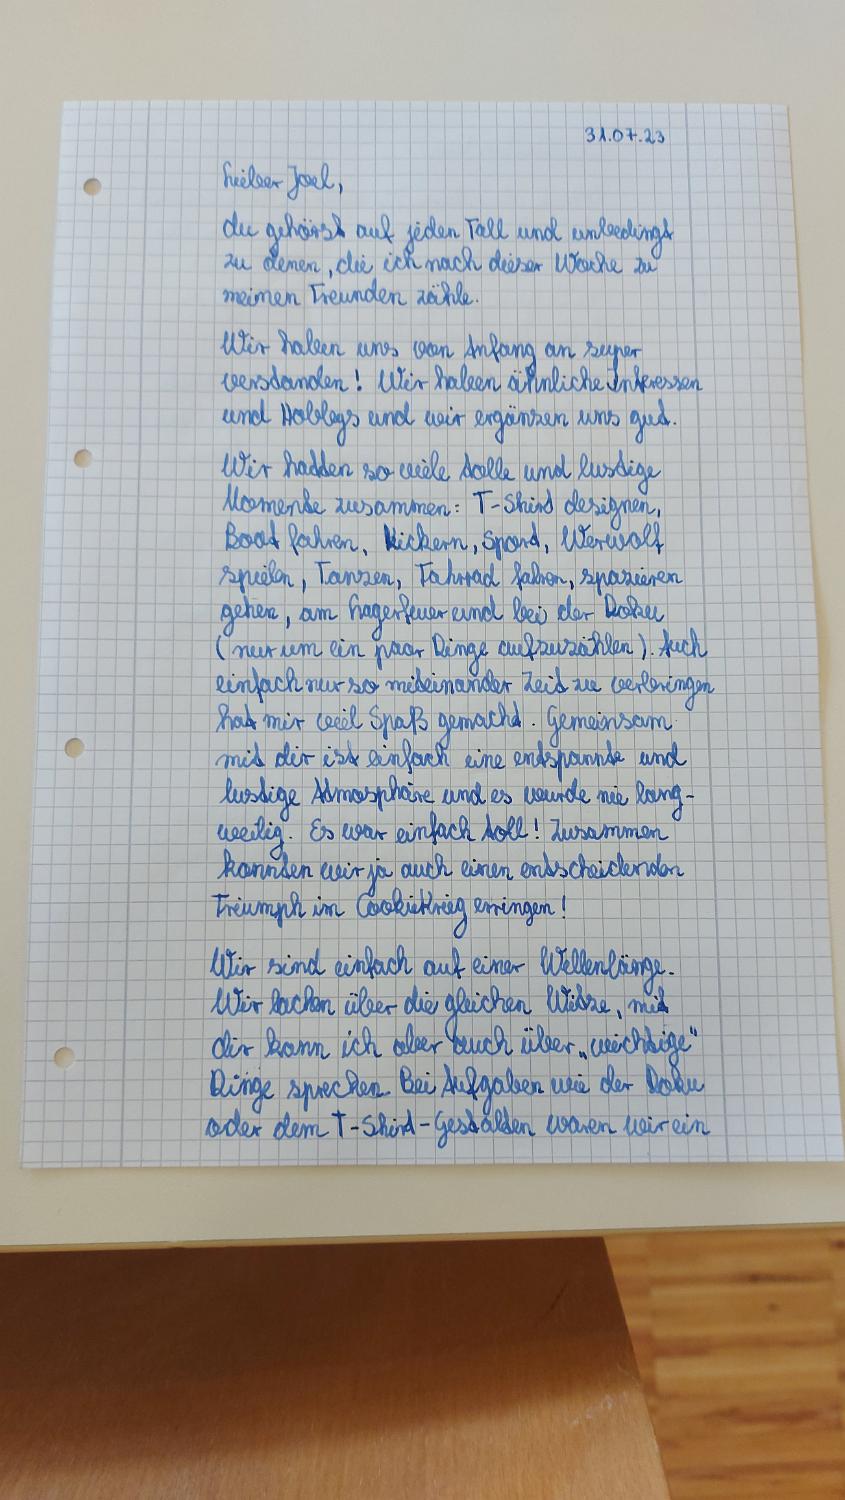 31.07.23
Lieber Joel,
du gehörst auf jeden Fall und unbedingt
zu denen, die ich nach dieser Woche zu
meinen Freunden zähle.
Wir haben uns von Anfang an super
verstanden! Wir haben ähnliche Interessen
und Hobbys und wir ergänzen uns gut.
Wir hatten so viele tolle und lustige
Momente zusammen: T-Shirt designen,
Boot fahren, Kickern, Sport, Werwolf
spielen, Tanzen, Fahrrad fahren, spazieren
gehen, am Lagerfeuer und bei der Doku
(nur um ein paar Dinge aufzuzählen). Auch
einfach nur so miteinander Zeit zu verbringen
hat mir viel Spaß gemacht. Gemeinsam
mit dir ist einfach eine entspannte und
lustige Atmosphäre und es wurde nie lang-
weilig. Es war einfach toll! Zusammen
konnten wir ja auch einen entscheidenden
Triumph im CookieKrieg erringen!
Wir sind einfach auf einer Wellenlänge.
Wir lachen über die gleichen Witze, mit
dir kann ich aber auch über „wichtige"
Dinge sprechen. Bei Aufgaben wie der Doku
oder dem T-Shirt-Gestalten waren wir ein